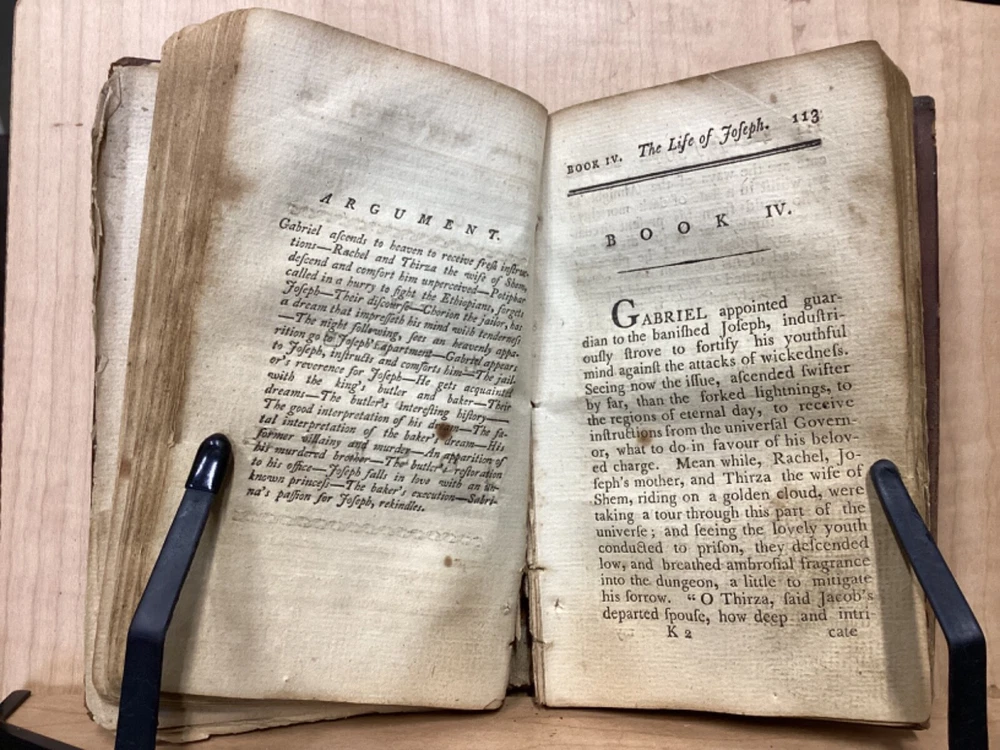 ARGUMENT.
Gabriel aſcends to heaven to receive freſh inſtruc-
tions—Rachel and Thirza the wife of Shem,
deſcend and comfort him unperceived—Potiphar
called in a hurry to fight the Ethiopians, forgets
Joſeph—Their diſcourſe—Chorion the jailor, has
a dream that impreſſeth his mind with tenderneſs
—The night following, ſees an heavenly appa-
rition go to Joſeph's apartment—Gabriel appears
to Joſeph, inſtructs and comforts him—The jail-
or's reverence for Joſeph—He gets acquainted
with the king's butler and baker—Their
dreams—The butler's intereſting hiſtory—
The good interpretation of his dream—The fa-
tal interpretation of the baker's dream—His
former villainy and murder—An apparition of
his murdered brother—The butler's reſtoration
to his office—Joſeph falls in love with an un-
known princeſs—The baker's execution—Sabri-
na's paſſion for Joſeph, rekindles.
BOOK IV. The Life of Joſeph. 113
BOOK IV.
GABRIEL appointed guar-
dian to the baniſhed Joſeph, induſtri-
ouſly ſtrove to fortify his youthful
mind againſt the attacks of wickedneſs.
Seeing now the iſſue, aſcended ſwifter
by far, than the forked lightnings, to
the regions of eternal day, to receive
inſtructions from the univerſal Govern-
or, what to do in favour of his belov-
ed charge. Mean while, Rachel, Jo-
ſeph's mother, and Thirza the wife of
Shem, riding on a golden cloud, were
taking a tour through this part of the
univerſe; and ſeeing the lovely youth
conducted to priſon, they deſcended
low, and breathed ambroſial fragrance
into the dungeon, a little to mitigate
his ſorrow. "O Thirza, ſaid Jacob's
departed ſpouſe, how deep and intri-
K 2 cate